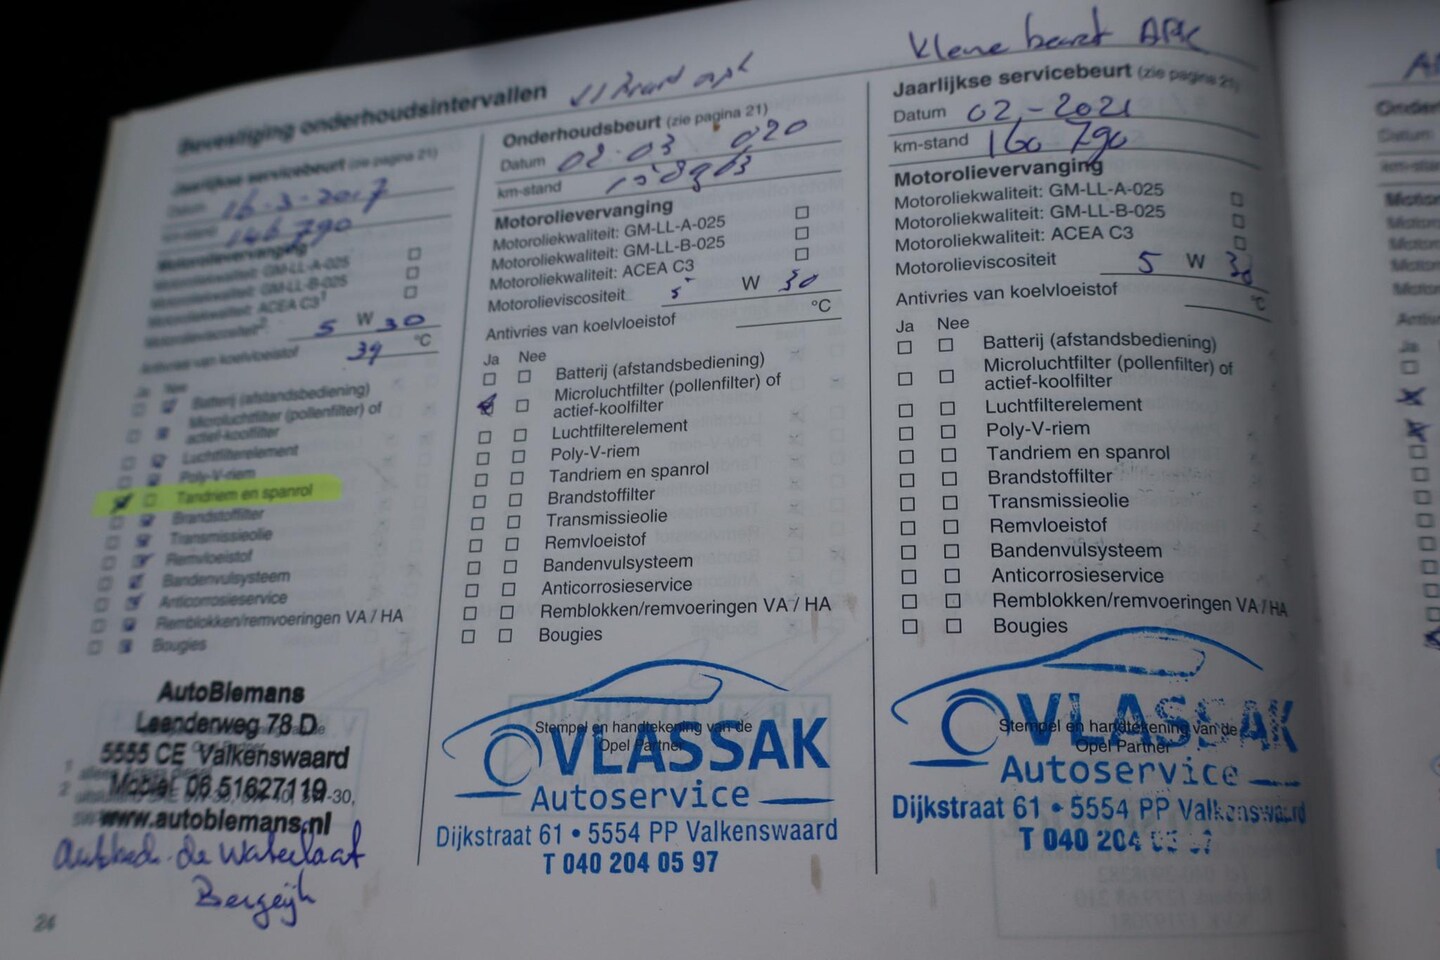 Bevestiging onderhoudsintervallen
Jaarlijkse servicebeurt (zie pagina 21)
Datum 16-3-2017
km-stand 146 790
Motorolievervanging
Motoroliekwaliteit: GM-LL-A-025
Motoroliekwaliteit: GM-LL-B-025
Motoroliekwaliteit: ACEA C3¹
Motorolieviscositeit² 5 W 30
Antivries van koelvloeistof 39 °C
Ja Nee
Batterij (afstandsbediening)
Microluchtfilter (pollenfilter) of
actief-koolfilter
Luchtfilterelement
Poly-V-riem
Tandriem en spanrol
Brandstoffilter
Transmissieolie
Remvloeistof
Bandenvulsysteem
Anticorrosieservice
Remblokken/remvoeringen VA / HA
Bougies
AutoBlemans
Leenderweg 78 D
5555 CE Valkenswaard
Mobiel 06 51627119
www.autoblemans.nl
de Waterlaat
Bergeijk
24
Onderhoudsbeurt (zie pagina 21)
Datum 02-03 020
km-stand
Motorolievervanging
Motoroliekwaliteit: GM-LL-A-025
Motoroliekwaliteit: GM-LL-B-025
Motoroliekwaliteit: ACEA C3
Motorolieviscositeit 5 W 30
Antivries van koelvloeistof °C
Ja Nee
Batterij (afstandsbediening)
Microluchtfilter (pollenfilter) of
actief-koolfilter
Luchtfilterelement
Poly-V-riem
Tandriem en spanrol
Brandstoffilter
Transmissieolie
Remvloeistof
Bandenvulsysteem
Anticorrosieservice
Remblokken/remvoeringen VA / HA
Bougies
Stempel en handtekening van de
Opel Partner
VLASSAK
Autoservice
Dijkstraat 61 • 5554 PP Valkenswaard
T 040 204 05 97
Kleine beurt APK
Jaarlijkse servicebeurt (zie pagina 21)
Datum 02-2021
km-stand 160 790
Motorolievervanging
Motoroliekwaliteit: GM-LL-A-025
Motoroliekwaliteit: GM-LL-B-025
Motoroliekwaliteit: ACEA C3
Motorolieviscositeit 5 W 30
Antivries van koelvloeistof °C
Ja Nee
Batterij (afstandsbediening)
Microluchtfilter (pollenfilter) of
actief-koolfilter
Luchtfilterelement
Poly-V-riem
Tandriem en spanrol
Brandstoffilter
Transmissieolie
Remvloeistof
Bandenvulsysteem
Anticorrosieservice
Remblokken/remvoeringen VA / HA
Bougies
Stempel en handtekening van de
Opel Partner
VLASSAK
Autoservice
Dijkstraat 61 • 5554 PP Valkenswaard
T 040 204